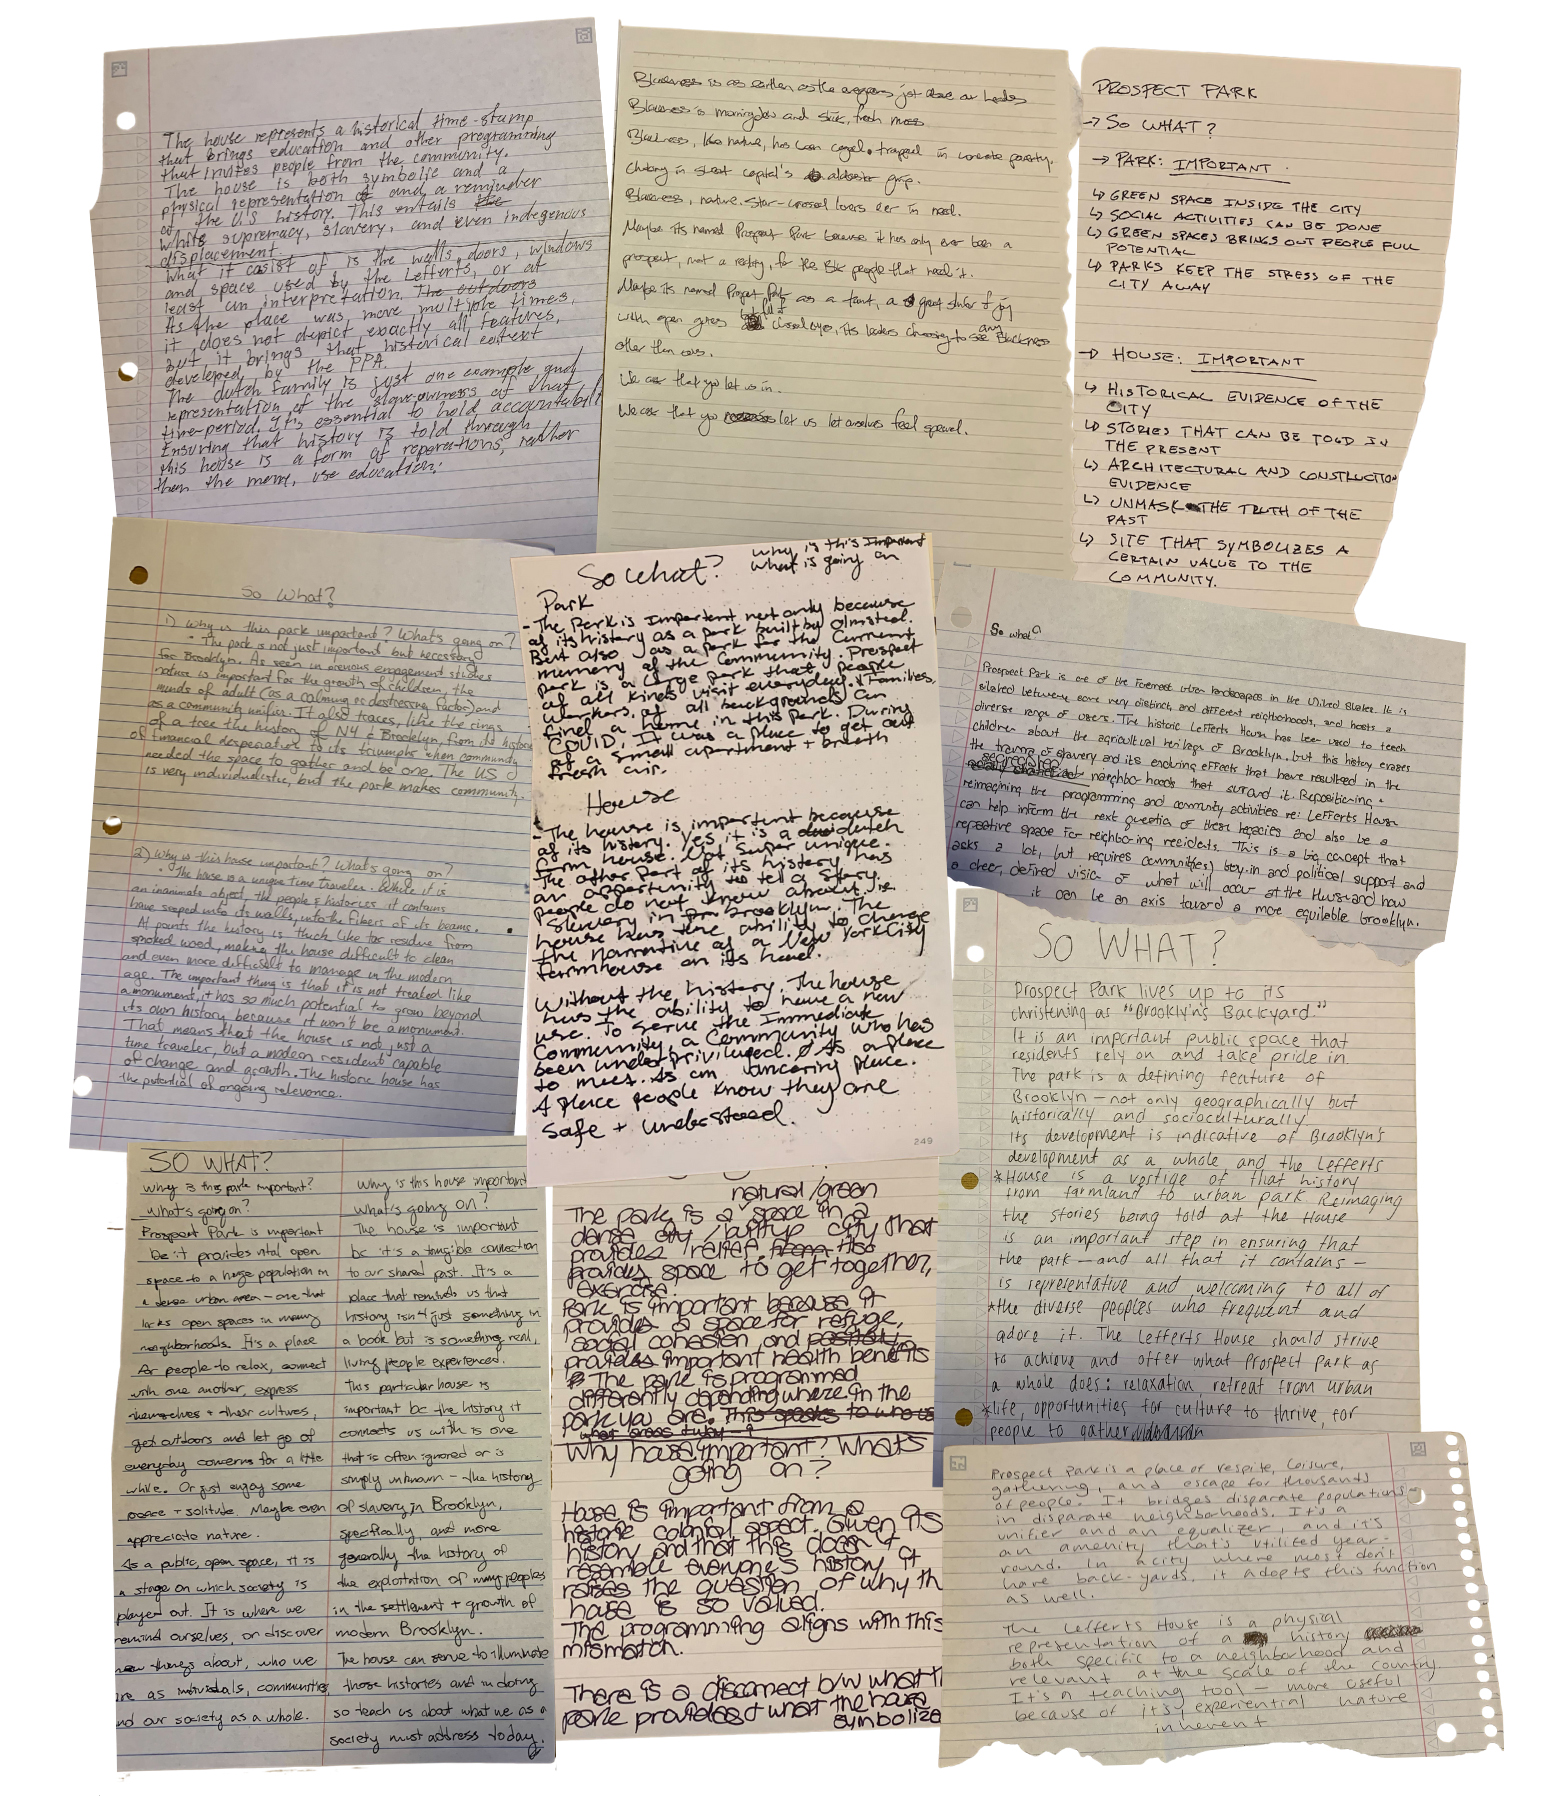 The house represents a historical time-stamp
that brings education and other programming
that invites people from the community.
The house is both symbolic and a
physical representation of and a reminder
of the U.S history. This entails the
white supremacy, slavery, and even indegenous
displacement
What it casist of is the walls, doors, windows
and space used by the Lefferts, or at
least an interpretation. The outdoors
As the place was move multiple times,
it does not depict exactly all features,
but it brings that historical context
developed by the PPA.
The dutch family is just one example and
representation of the slave-owners of that
time-period. It's essential to hold accountabili
Ensuring that history is told through
this house is a form of reperations, rather
then the mere, use education.
Blackness is as earthen as the evergreens just above our heads
Blackness is morning dew and slick, fresh moss
Blackness, like nature, has been caged. trapped in concrete poverty.
Choking in street capital's grip.
Blackness, nature. Star-crossed lovers ever in need.
Maybe its named Prospect Park because it has only ever been a
prospect, not a reality, for the Blk people that need it.
Maybe its named Prospect Park as a taunt, a great of joy
with open gates but full of closed eyes, its leaders choosing to see any Blackness
other than ours.
We ask that you let us in.
We ask that you let us let ourselves feel spread.
PROSPECT PARK
→ SO WHAT?
→ PARK: IMPORTANT.
↳ GREEN SPACE INSIDE THE CITY
↳ SOCIAL ACTIVITIES CAN BE DONE
↳ GREEN SPACES BRINGS OUT PEOPLE FULL
POTENTIAL
↳ PARKS KEEP THE STRESS OF THE
CITY AWAY
→ HOUSE: IMPORTANT
↳ HISTORICAL EVIDENCE OF THE
CITY
↳ STORIES THAT CAN BE TOLD IN
THE PRESENT
↳ ARCHITECTURAL AND CONSTRUCTION
EVIDENCE
↳ UNMASK THE TRUTH OF THE
PAST
↳ SITE THAT SYMBOLIZES A
CERTAIN VALUE TO THE
COMMUNITY.
So What?
1) Why is this park important? What's going on?
• The park is not just important but necessary
for Brooklyn. As seen in previous engagement studies
nature is important for the growth of children, the
minds of adult (as a calming or destressing factor) and
as a community unifier. It also traces, like the rings
of a tree the history of NY & Brooklyn, from its history
of financial desperation to its triumphs when community
needed the space to gather and be one. The US
is very individualistic, but the park makes community.
2) Why is this house important? What's going on?
• The house is a unique time traveler. While it is
an inanimate object, the people & histories it contains
have seeped into its walls, into the fibers of its beams.
At points the history is thick like tar residue from
spoked wood, making the house difficult to clean
and even more difficult to manage in the modern
age. The important thing is that if it is not treated like
a monument, it has so much potential to grow beyond
its own history because it won't be a monument.
That means that the house is not just a
time traveler, but a modern resident capable
of change and growth. The historic house has
the potential of ongoing relevance.
So What?
why is this Important
what is going on
Park
- The Park is Important not only because
of its history as a park built by Olmsted.
But also as a park for the Current
memory of the Community. Prospect
park is a large park that people
of all kinds visit everyday. Families,
workers, of all backgrounds can
find a home in this Park. During
COVID, It was a place to get out
of a small apartment + breath
fresh air.
House
- The house is important because
of its history. Yes it is a dutch
farm house. Not super unique.
The other part of its history has
an opportunity to tell a story
people do not know about. ie
Slavery in brooklyn. The
house has the ability to change
the narrative of a New York City
farmhouse on its head.
Without the history. The house
has the ability to have a new
use. To serve the Immediate
Community, a Community who has
been underprivileged. As a place
to meet. As an ancoring place.
A place people know they are
safe + understood.
249
So what?
Prospect Park is one of the foremost urban landscapes in the United States. It is
situated between some very distinct, and different neighborhoods, and hosts a
diverse range of users. The historic Lefferts House has been used to teach
children about the agricultural heritage of Brooklyn. but this history erases
the trauma of slavery and its enduring effects that have resulted in the
segregated
neighborhoods that surround it. Repositioning +
reimagining the programming and community activities re: Lefferts House
can help inform the next question of these legacies and also be a
reparative space for neighboring residents. This is a big concept that
asks a lot, but requires communit(ies) buy-in and political support and
a clear, defined vision of what will occur at the House and how
it can be an axis toward a more equitable Brooklyn.
SO WHAT?
Prospect Park lives up to its
christening as "Brooklyn's Backyard."
It is an important public space that
residents rely on and take pride in.
The park is a defining feature of
Brooklyn — not only geographically but
historically and socioculturally
Its development is indicative of Brooklyn's
development as a whole and the Lefferts
*House is a vestige of that history
from farmland to urban park Reimaging
the stories being told at the House
is an important step in ensuring that
the park — and all that it contains —
is representative and welcoming to all of
*the diverse peoples who frequent and
adore it. The Lefferts House should strive
to achieve and offer what Prospect Park as
a whole does: relaxation, retreat from urban
*life, opportunities for culture to thrive, for
people to gather
SO WHAT?
Why is this park important?
What's going on?
Prospect Park is important
bc it provides vital open
space to a huge population in
a dense urban area — one that
lacks open spaces in many
neighborhoods. It's a place
for people to relax, connect
with one another, express
themselves + their cultures,
get outdoors and let go of
everyday concerns for a little
while. Or just enjoy some
peace + solitude. Maybe even
appreciate nature.
As a public, open space, it is
a stage on which society is
played out. It is where we
remind ourselves, or discover
new things about, who we
are as individuals, communities,
and our society as a whole.
Why is this house important
What's going on?
The house is important
bc it's a tangible connection
to our shared past. It's a
place that reminds us that
history isn't just something in
a book but is something real,
living people experienced.
This particular house is
important bc the history it
connects us with is one
that is often ignored or is
simply unknown — the history
of slavery in Brooklyn,
specifically, and more
generally the history of
the exploitation of many peoples
in the settlement + growth of
modern Brooklyn.
The house can serve to illuminate
those histories and in doing
so teach us about what we as a
society must address today.
natural/green
The park is a space in a
dense city / builtup city that
provides relief from the
provides space to get together,
exercise.
Park is important because it
provides a space for refuge,
social cohesion and
provides important health benefits
The park is programmed
differently depending where in the
park you are. This speaks to who us
Why house important? What's
going on?
House is important from a
historic colonial aspect. Given its
history and that this doesn't
resemble everyone's history it
raises the question of why th
house is so valued.
The programming aligns with this
mismatch.
There is a disconnect b/w what th
park provides & what the house
symbolize
Prospect Park is a place of respite, leisure,
gathering, and escape for thousands
of people. It bridges disparate populations
in disparate neighborhoods. It's a
unifier and an equalizer, and it's
an amenity that's utilized year-
round. In a city where most don't
have back-yards, it adopts this function
as well.
The Lefferts House is a physical
representation of a history
both specific to a neighborhood and
relevant at the scale of the country
It's a teaching tool — more useful
because of its experiential nature
inherent